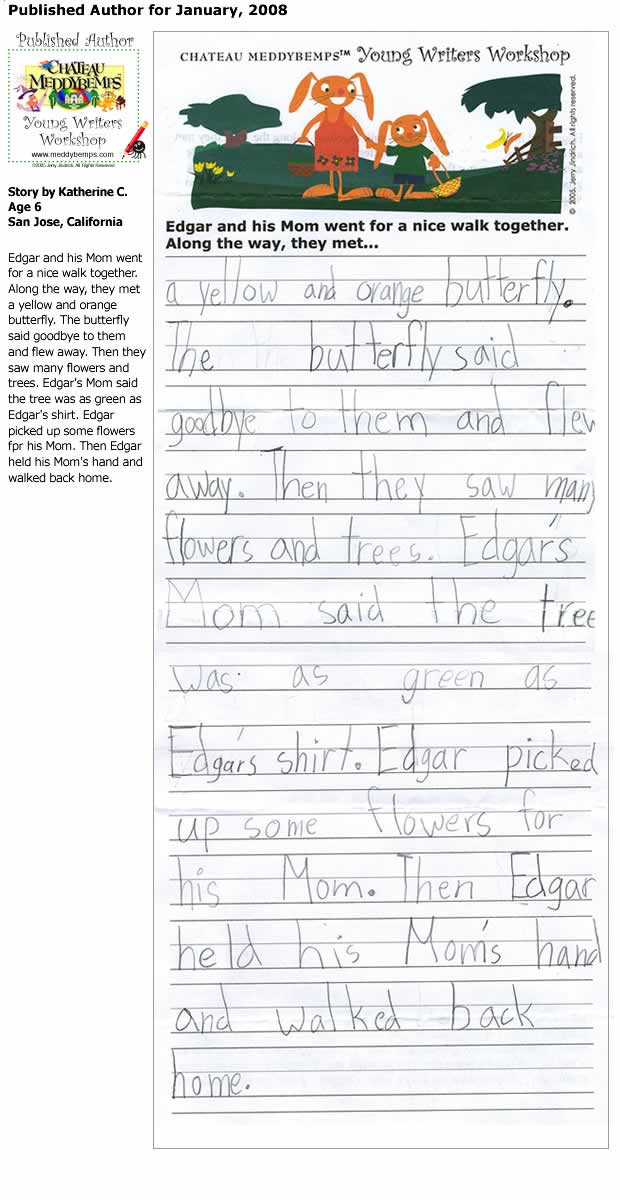 Published Author for January, 2008
Published Author
CHATEAU
MEDDYBEMPS
Young Writers
Workshop
www.meddybemps.com
©2005. Jerry Jindrich, All Rights Reserved.
Story by Katherine C.
Age 6
San Jose, California
Edgar and his Mom went
for a nice walk together.
Along the way, they met
a yellow and orange
butterfly. The butterfly
said goodbye to them
and flew away. Then they
saw many flowers and
trees. Edgar's Mom said
the tree was as green as
Edgar's shirt. Edgar
picked up some flowers
fpr his Mom. Then Edgar
held his Mom's hand and
walked back home.
CHATEAU MEDDYBEMPS™ Young Writers Workshop
© 2005, Jerry Jindrich, All rights reserved.
Edgar and his Mom went for a nice walk together.
Along the way, they met...
a yellow and orange butterfly.
The butterfly said
goodbye to them and flew
away. Then they saw many
flowers and trees. Edgar's
Mom said the tree
was as green as
Edgar's shirt. Edgar picked
up some flowers for
his Mom. Then Edgar
held his Mom's hand
and walked back
home.